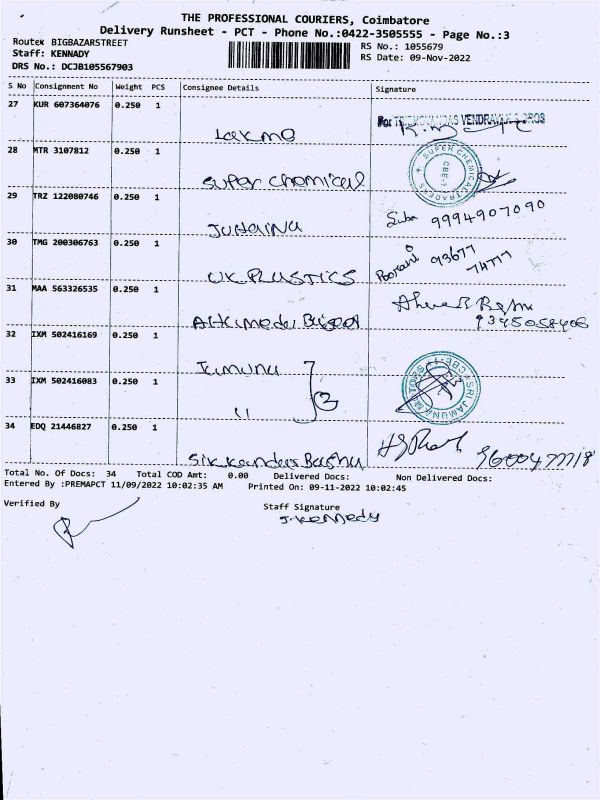 THE PROFESSIONAL COURIERS, Coimbatore
Delivery Runsheet - PCT - Phone No.:0422-3505555 - Page No.:3
Route: BIGBAZARSTREET
Staff: KENNADY
DRS No.: DCJB105567903
RS No.: 1055679
RS Date: 09-Nov-2022
S No Consignment No Weight PCS Consignee Details Signature
27 KUR 607364076 0.250 1
Lakme
For VENDRAVAN
28 MTR 3107812 0.250 1
super chemical
SUPER CHEMICAL TRADERS CBE.1
29 TRZ 122080746 0.250 1
Juhaina
Suba 9994907090
30 TMG 200306763 0.250 1
UK PLASTICS
Poorani 93677 74777
31 MAA 563326535 0.250 1
32 IXM 502416169 0.250 1
Jamuna
33 IXM 502416083 0.250 1
"
SRI JAMUNA MOTORS CBE-1
34 EDQ 21446827 0.250 1
Sikkandar Basha
Total No. Of Docs: 34 Total COD Amt: 0.00 Delivered Docs: Non Delivered Docs:
Entered By :PREMAPCT 11/09/2022 10:02:35 AM Printed On: 09-11-2022 10:02:45
Verified By
Staff Signature
J.Kennedy